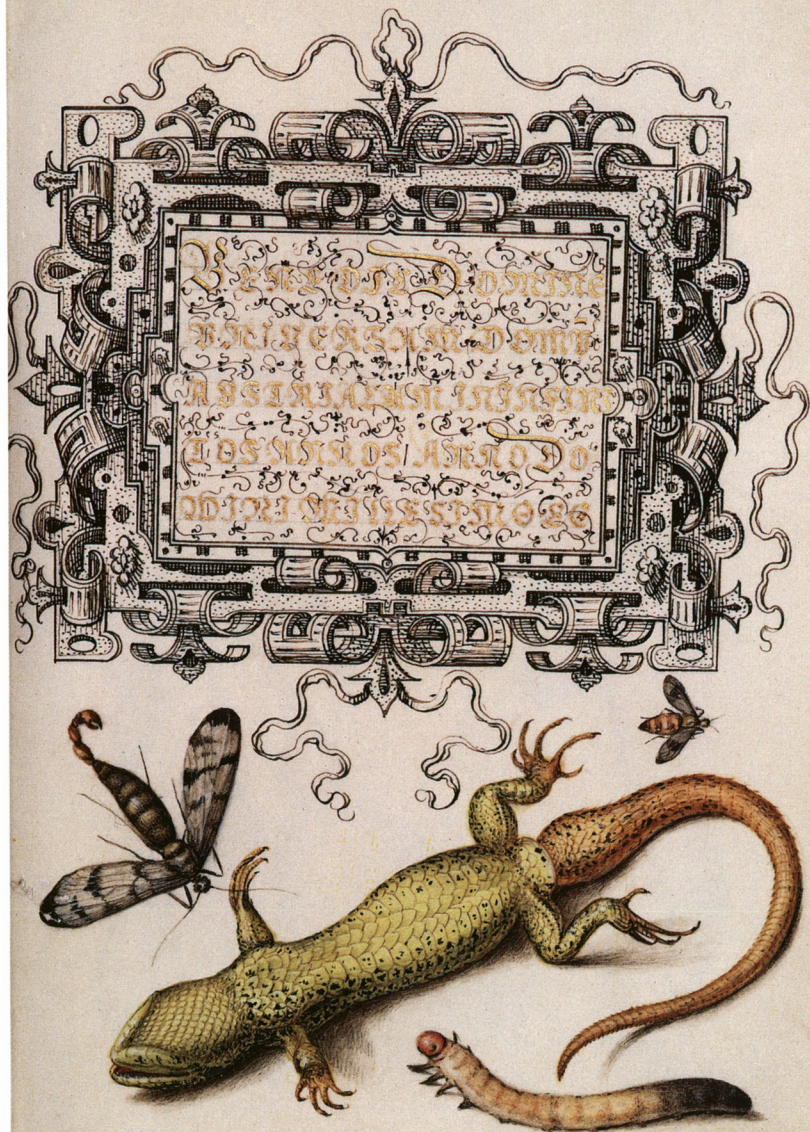 BENEDIC DOMINE
VNIVERSAM DOMŪ
AVSTRIACAM IN INFINI
TOS ANNOS/ ANNO DO
MINI MILLESIMO